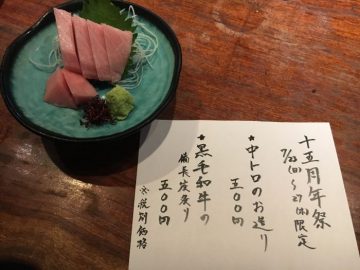 十五周年祭
7/23(日)〜27(木)限定
★中トロのお造り
五〇〇円
★黒毛和牛の
備長炭炙り
五〇〇円
※税別価格